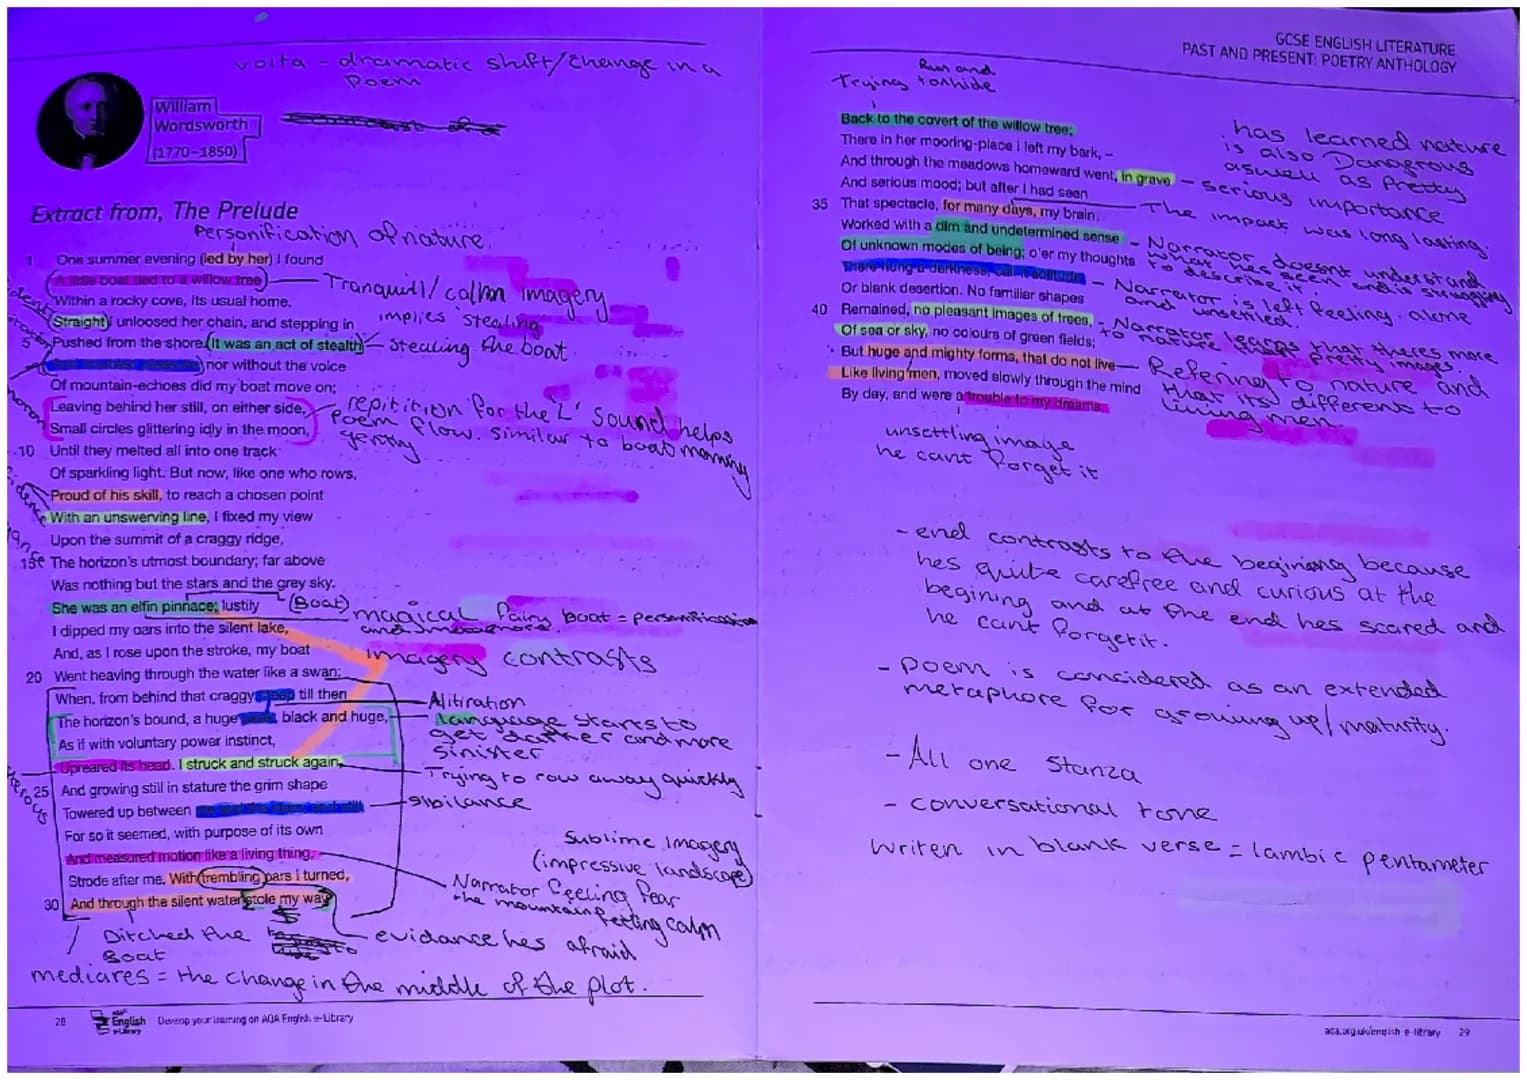 volta - dramatic shift/change in a
Poem
William
Wordsworth
(1770–1850)
Extract from, The Prelude
Personification of nature.
1 One summer evening (led by her) I found
A little boat tied to a willow tree
Tranquill/calm imagery
Within a rocky cove, its usual home.
Straight I unloosed her chain, and stepping in
implies 'stealing'
5 Pushed from the shore. It was an act of stealth
Stealing the boat.
nor without the voice
Of mountain-echoes did my boat move on;
Leaving behind her still, on either side,
Small circles glittering idly in the moon,
repitition for the 'L' sound helps
Poem flow. similar to boat
gently
10 Until they melted all into one track
Of sparkling light. But now, like one who rows,
Proud of his skill, to reach a chosen point
With an unswerving line, I fixed my view
Upon the summit of a craggy ridge,
15 The horizon's utmost boundary; far above
Was nothing but the stars and the grey sky.
She was an elfin pinnace; lustily
(Boat)
magical fairy boat = personification
I dipped my oars into the silent lake,
And, as I rose upon the stroke, my boat
imagery contrasts
20 Went heaving through the water like a swan;
When, from behind that craggy steep till then
Alitiration
The horizon's bound, a huge peak, black and huge,
language starts to
get darker and more
sinister
As if with voluntary power instinct,
Upreared its head. I struck and struck again,
Trying to row away quickly
25 And growing still in stature the grim shape
Towered up between me and the stars, and still
sibilance
For so it seemed, with purpose of its own
And measured motion like a living thing,
Sublime Imagery
(impressive landscape)
Strode after me. With trembling oars I turned,
Narrator feeling fear
the mountain feeling calm
30 And through the silent water stole my way
Ditched the
Boat
evidance hes afraid
mediares = the change in the middle of the plot.
28
English
e-Library
Develop your learning on AQA English e-Library
GCSE ENGLISH LITERATURE
PAST AND PRESENT: POETRY ANTHOLOGY
Run and
Trying to hide
Back to the covert of the willow tree;
There in her mooring-place I left my bark, –
And through the meadows homeward went, in grave
And serious mood; but after I had seen
has learned nature
is also Dangerous
aswell as Pretty
serious importance
35 That spectacle, for many days, my brain
The impact was long lasting.
Worked with a dim and undetermined sense
Of unknown modes of being; o'er my thoughts
Narrator doesnt understand
what hes seen and is struggling
to describe it.
There hung a darkness, call it solitude
Or blank desertion. No familiar shapes
Narrator is left feeling alone
and unsettled.
40 Remained, no pleasant images of trees,
Of sea or sky, no colours of green fields;
Narrator learns that theres more
to nature than pretty images.
But huge and mighty forms, that do not live
Like living men, moved slowly through the mind
Refering to nature and
that its different to
living men.
By day, and were a trouble to my dreams.
unsettling image
he cant forget it
- end contrasts to the begining because
hes quite carefree and curious at the
begining and at the end hes scared and
he cant forget it.
- Poem is considered as an extended
metaphore for growing up/maturity.
- All one stanza
- conversational tone
writen in blank verse = iambic pentameter
aqa.org.uk/english-e-library 29